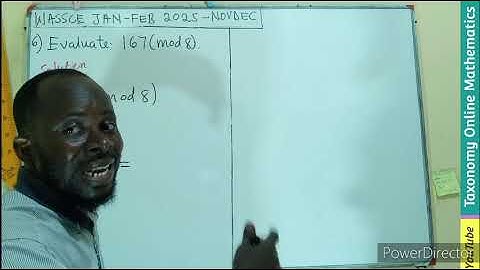 WASSCE JAN-FEB 2025 - NOVDEC
6) Evaluate: 167(mod 8).
Solution
mod 8)
=
Taxonomy Online Mathematics
YouTube
PowerDirector